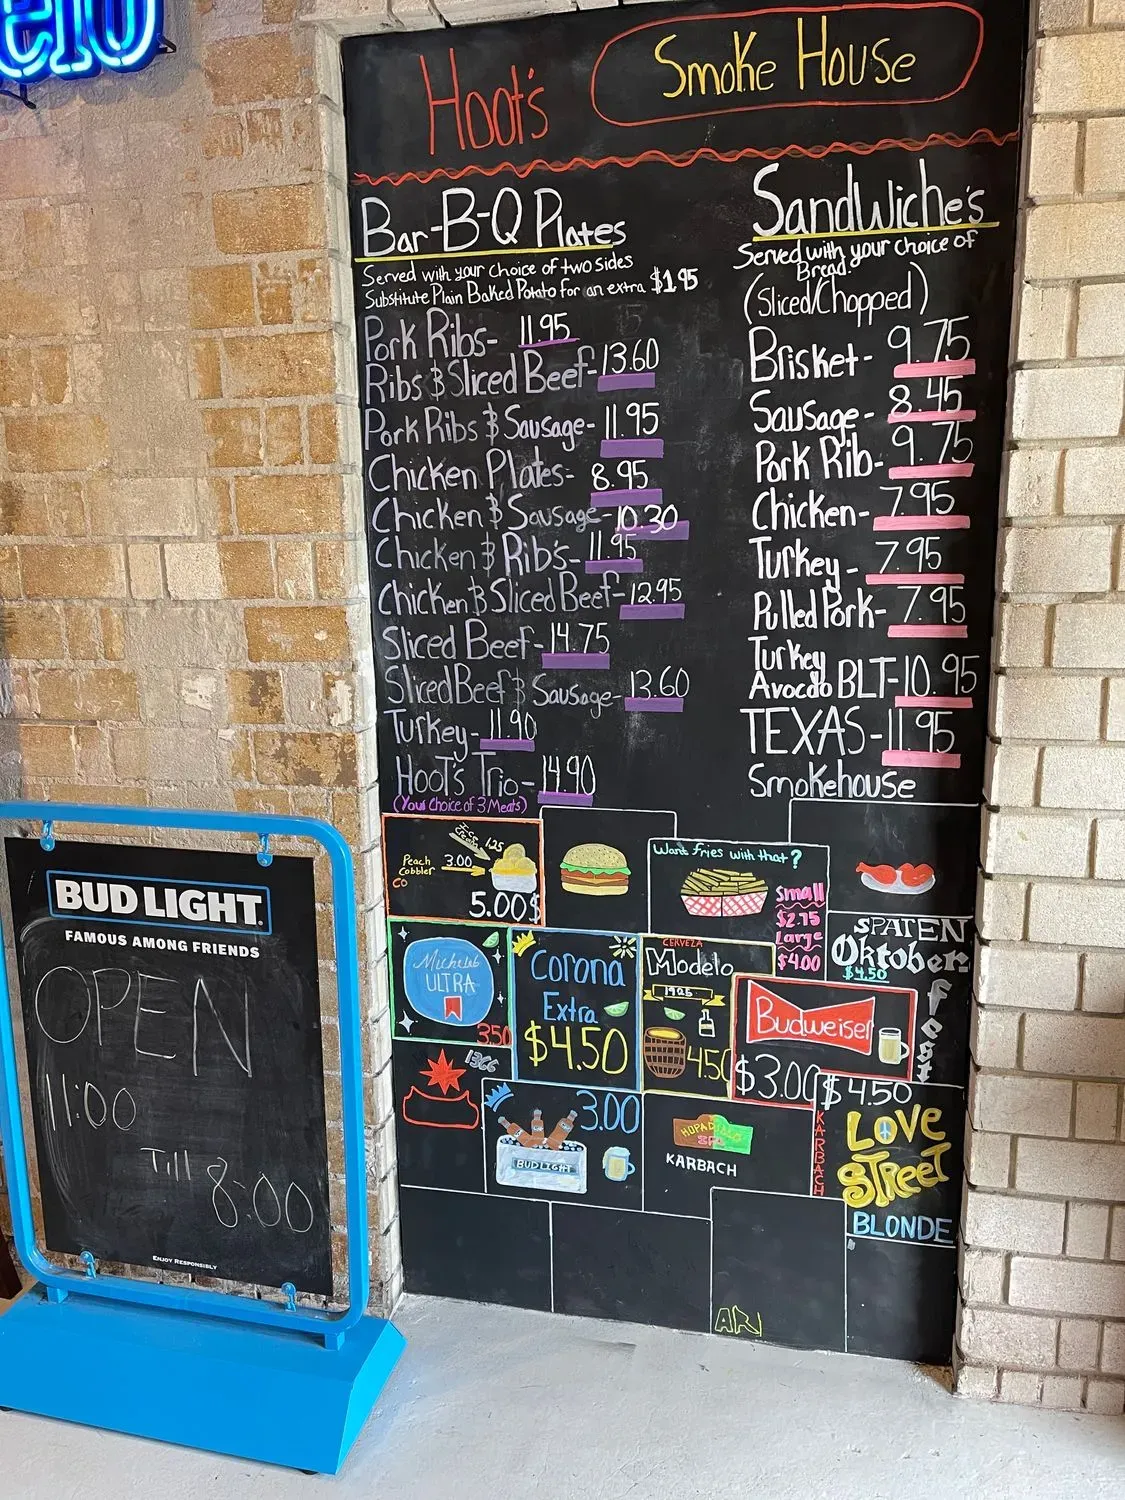 Hoot's
Smoke House
Bar-B-Q Plates
Served with your choice of two sides
Substitute Plain Baked Potato for an extra $1.95
Pork Ribs- 11.95
Ribs & Sliced Beef- 13.60
Pork Ribs & Sausage- 11.95
Chicken Plates- 8.95
Chicken & Sausage- 10.30
Chicken & Rib's- 11.95
Chicken & Sliced Beef- 12.95
Sliced Beef- 14.75
Sliced Beef & Sausage- 13.60
Turkey- 11.90
Hoot's Trio- 14.90
(Your Choice of 3 Meats)
Sandwiche's
Served with your choice of
Bread.
(Sliced/Chopped)
Brisket- 9.75
Sausage- 8.45
Pork Rib- 9.75
Chicken- 7.95
Turkey- 7.95
Pulled Pork- 7.95
Turkey
Avocado BLT- 10.95
TEXAS- 11.95
Smokehouse
Ice
Cream 1.25
Peach 3.00
Cobbler
CO
5.00$
Want fries with that?
Small
$2.75
Large
$4.00
SPATEN
Oktober
$4.50
fest
Michelob
ULTRA
3.50
Corona
Extra
$4.50
CERVEZA
Modelo
1925
4.50
Budweiser
$3.00
1366
3.00
BUD LIGHT
KARBACH
$4.50
KARBACH
LOVE
STREET
BLONDE
AR
BUD LIGHT
FAMOUS AMONG FRIENDS
OPEN
11:00
Till
8:00
ENJOY RESPONSIBLY